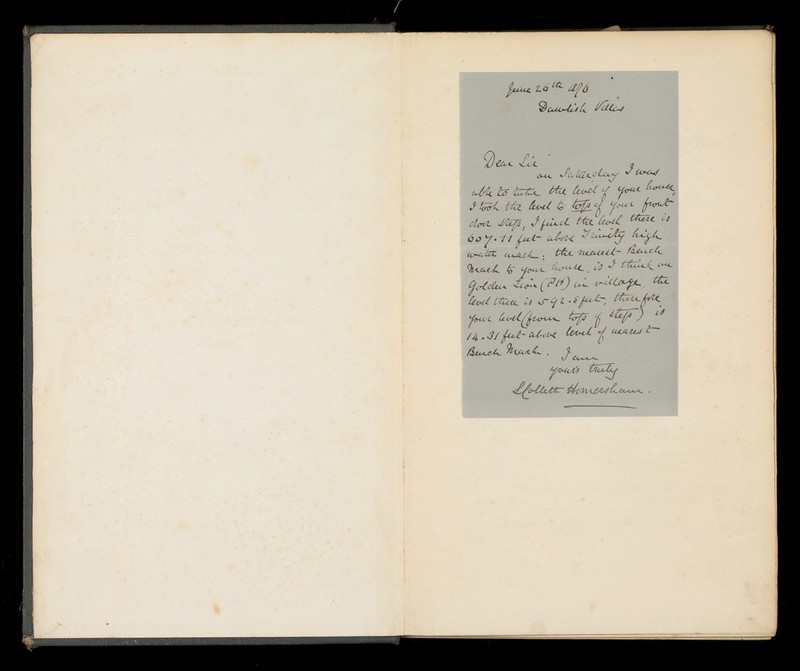 June 26th 1876
Dawlish Villas
Dear Sir
on Saturday I was
able to take the level of your house,
I took the level to tops of your front
door steps, I find the level there is
607.11 feet above Trinity high
water mark; the nearest Bench
Mark to your house, is I think on
Golden Lion (PH) in village, the
level there is 592.8 feet, therefore
your level (from tops of steps) is
14.31 feet above level of nearest
Bench Mark. I am
yours truly
S Collett Homersham.